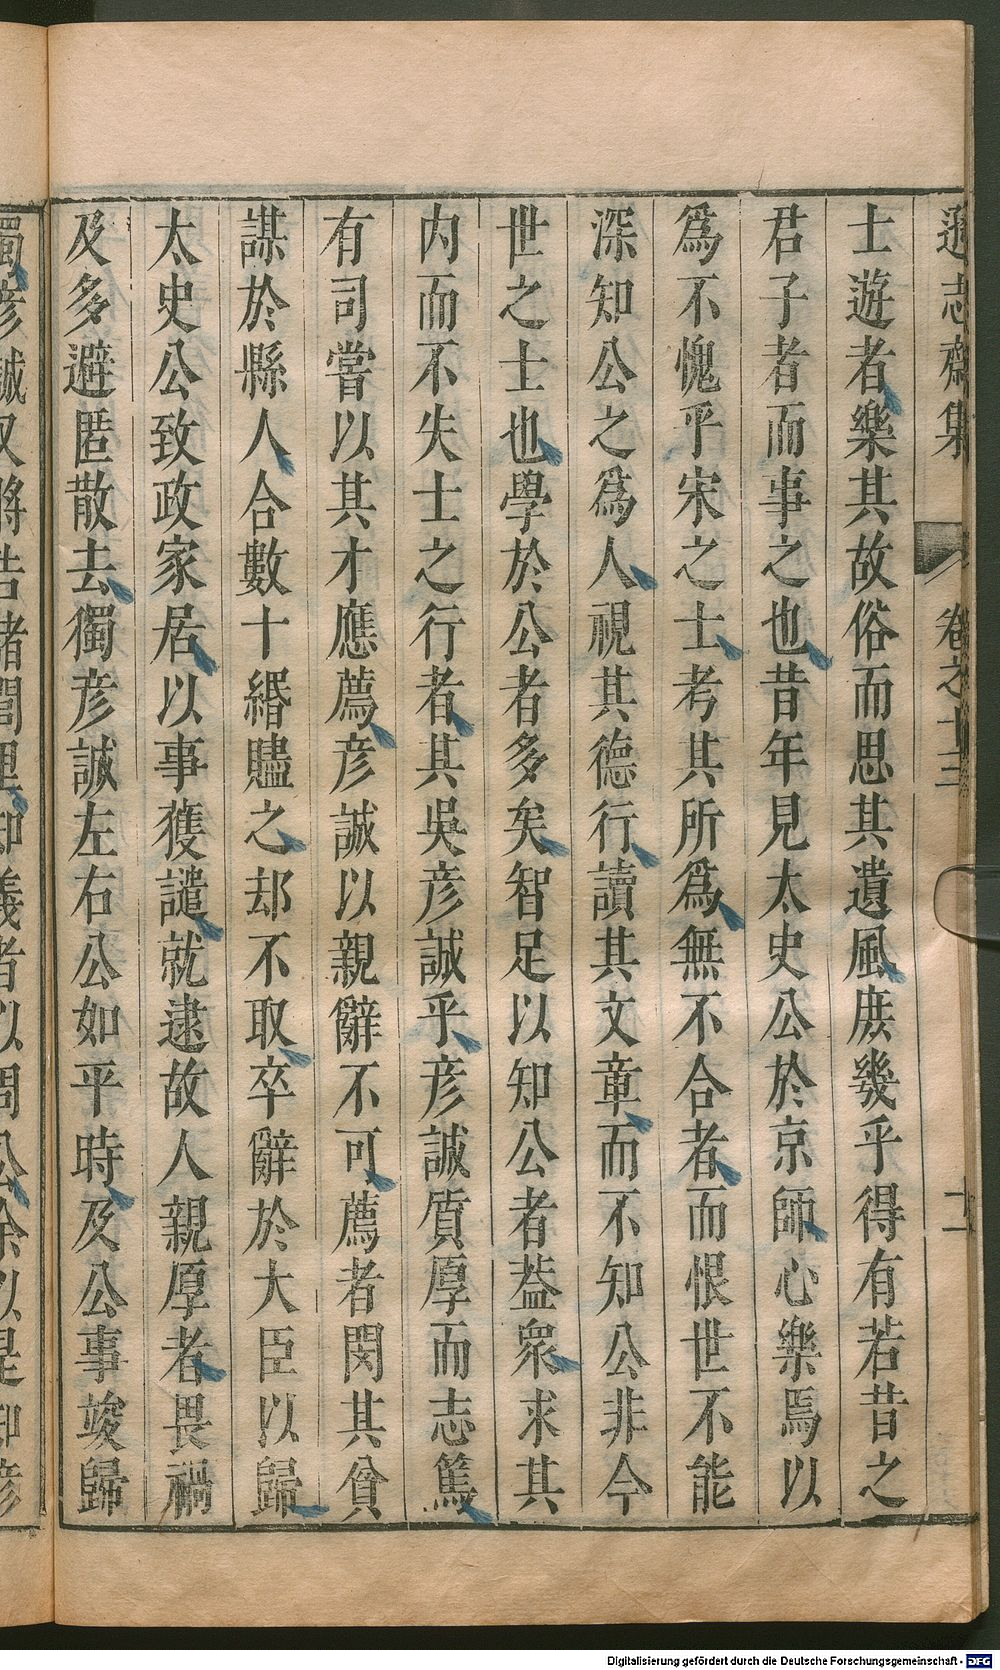 遜志齋集 卷之十三 十一
士遊者樂其故俗而思其遺風庶幾乎得有若昔之
君子者而事之也昔年見太史公於京師心樂焉以
爲不愧乎宋之士考其所爲無不合者而恨世不能
深知公之爲人視其德行讀其文章而不知公非今
世之士也學於公者多矣智足以知公者葢衆求其
内而不失士之行者其吳彦誠乎彦誠質厚而志篤
有司嘗以其才應薦彦誠以親辭不可薦者閔其貧
謀於縣人合數十緡贐之却不取卒辭於大臣以歸
太史公致政家居以事獲譴就逮故人親厚者畏禍
及多避匿散去獨彦誠左右公如平時及公事竣歸
獨彦誠又將告諸閭里知義者以問公余以是知彦
Digitalisierung gefördert durch die Deutsche Forschungsgemeinschaft - DFG